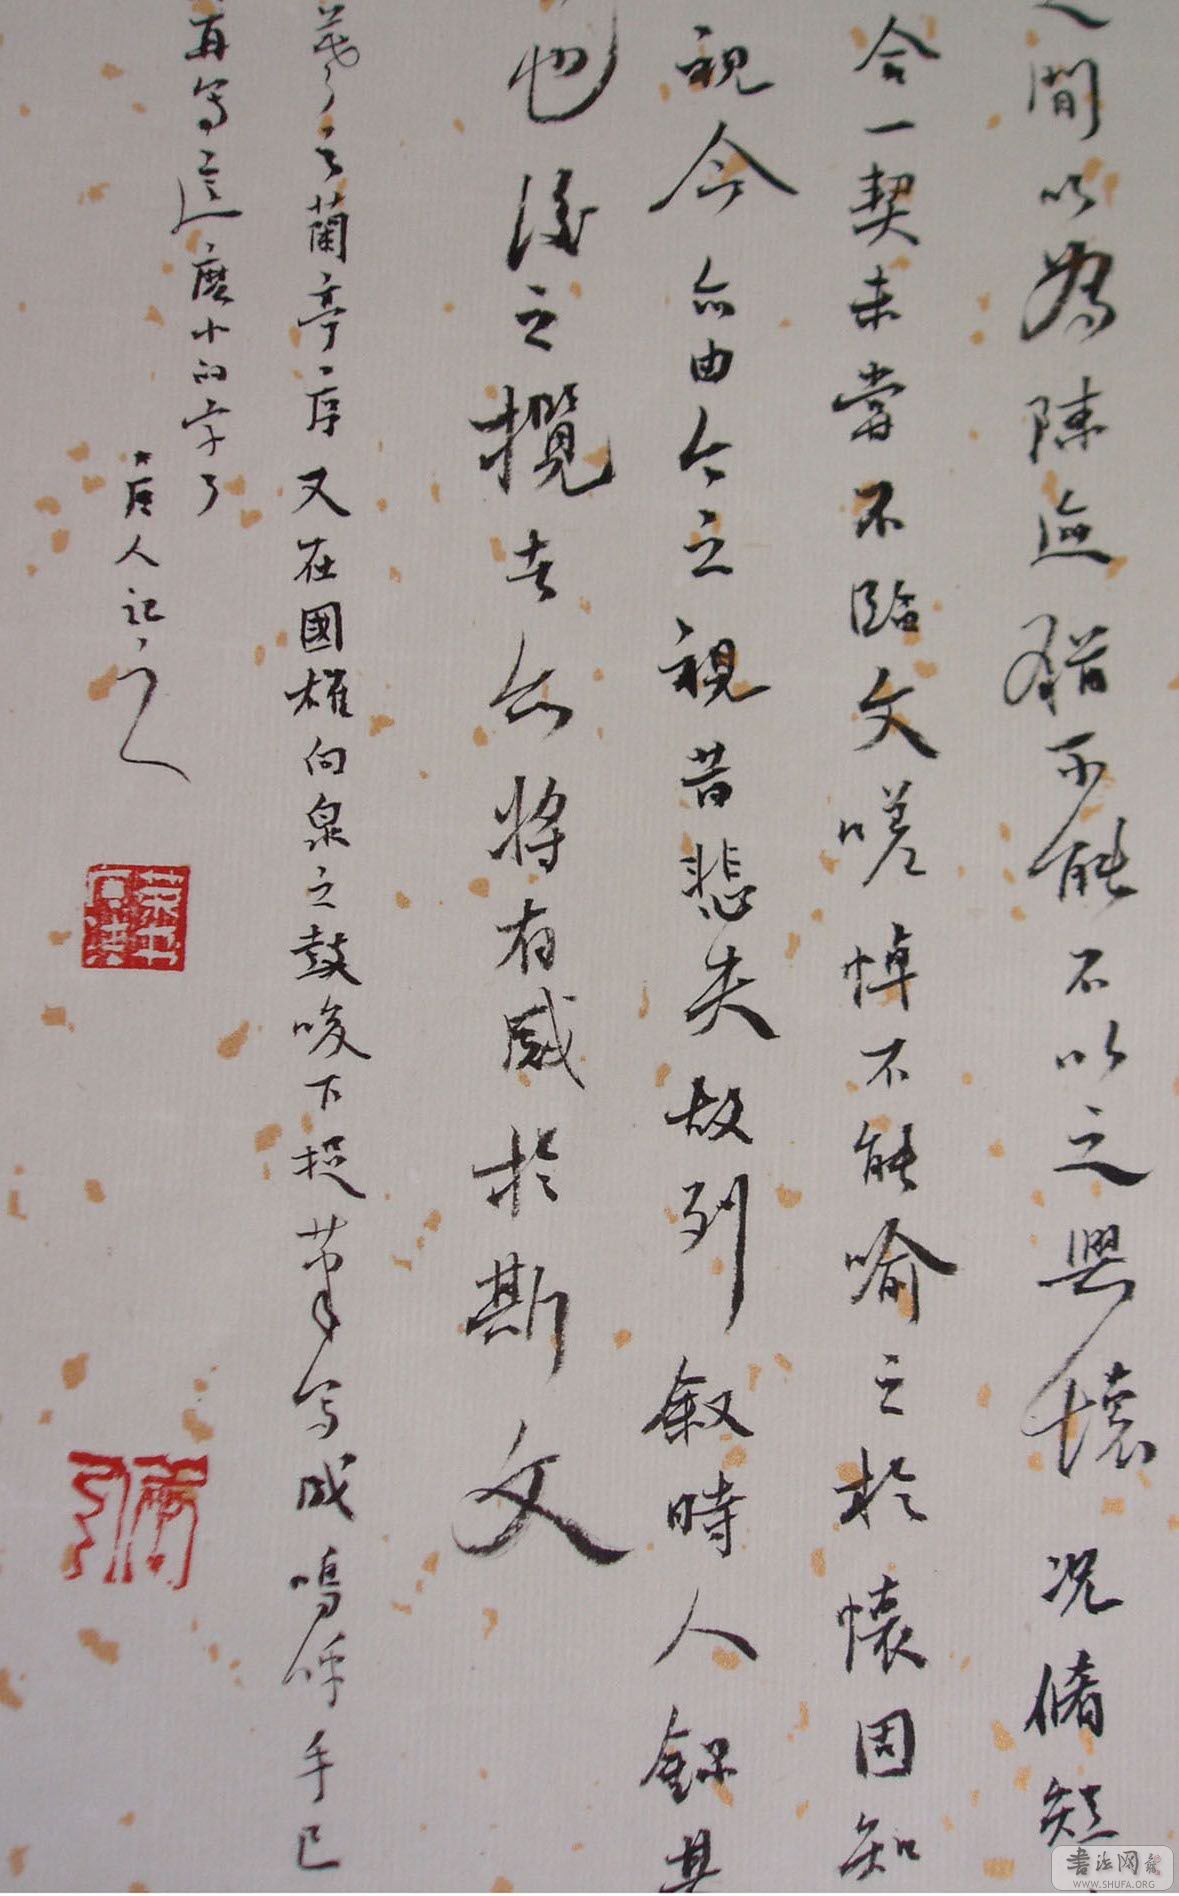 之間以為陳迹猶不能不以之興懷況脩短
合一契未嘗不臨文嗟悼不能喻之於懷固知
視今亦由今之視昔悲夫故列敘時人錄其
也後之攬者亦將有感於斯文
羲之蘭亭序又在國雄向泉之鼓唆下捉筆寫成嗚呼手已
再寫這麼小的字了
唐人記之
書法网
WWW.SHUFA.ORG